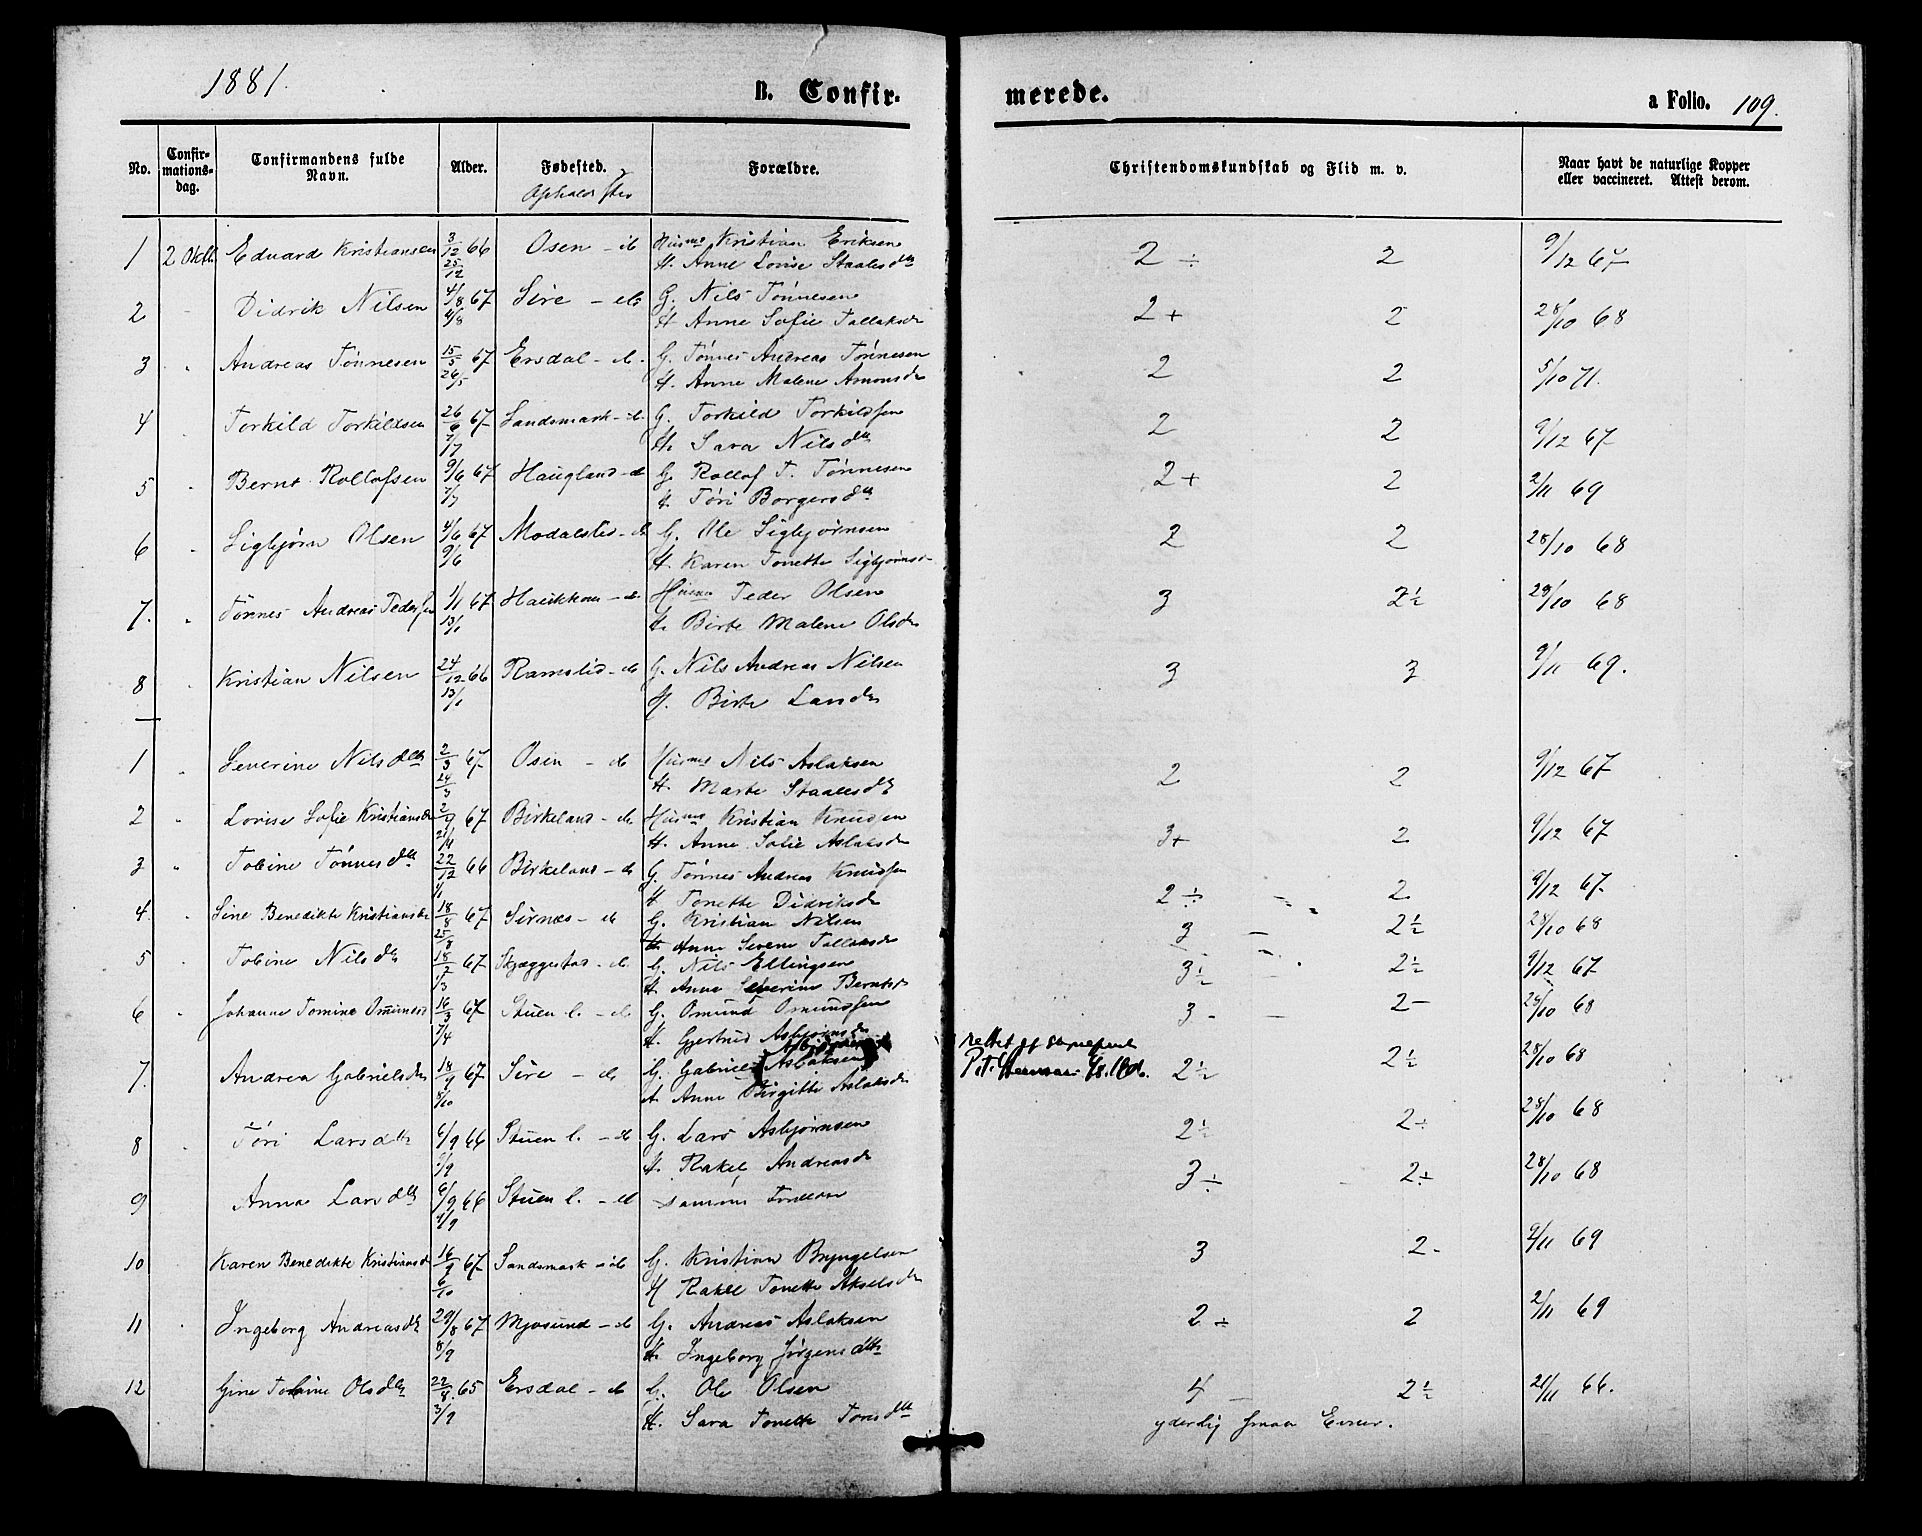 1881. B. Confirmerede. a Folio. 109.
No. Confirmationsdag. Confirmandens fulde Navn. Alder. Fødested. Forældre. Christendomskundskab og Flid m. v. Naar havt de naturlige Kopper eller vaccineret. Attest derom.
Opholdssted
1 2 Oktb. Eduard Kristiansen 3/12 66 Osen - ib Husmd Kristian Eriksen 2 ÷ 2 9/12 67
25/12 H. Anne Lovise Staalesdtr
2 Didrik Nilsen 4/8 67 Sire - ib G. Nils Tønnesen 2+ 2 28/10 68
4/8 H. Anne Sofie Tallaksdr
3 " Andreas Tønnesen 15/5 67 Ersdal - ib. G. Tønnes Andreas Tønnesen 2 2 5/10 71.
26/5 H. Anne Malene Amonsdr
4 Torkild Torkildsen 26/6 67 Sandsmark - ib. G. Torkild Torkildsen 2 2 9/12 67
7/7 H. Sara Nilsdtr
5 " Bernt Rollofsen 9/6 67 Haugland - ib G. Rollof T. Tønnesen 2+ 2 2/11 69
7/7 H. Tøri Borgersdtr
6 " Sigbjørn Olsen 4/6 67 Modalsli - ib G. Ole Sigbjørnsen 2 2 28/10 68
9/6 H. Karen Tonette Sigbjørnsd
7. " Tønnes Andreas Pedersen 1/1 67 Haukkom - ib Husmd Peder Olsen 3 2½ 28/10 68
13/1 H. Birte Malene Olsdr
8 " Kristian Nilsen 24/12 66 Ramslid - ib G. Nils Andreas Nilsen 3 3 2/11 69.
13/1 H. Birte Larsdr
1 " Severine Nilsdtr 2/3 67 Osen - ib Husmd Nils Aslaksen 2 2 9/12 67
24/3 H. Marte Staalesdr
2 " Lovise Sofie Kristiansdr 67 Birkeland - ib Husmd Kristian Knudsen 3+ 2 9/12 67
21/4 H. Anne Sofie Aslaksdr
3 " Tobine Tønnesdtr 22/12 66 Birkeland - ib G. Tønnes Andreas Knudsen 2 ÷ 2 9/12 67
H Tonette Didriksdr
4. " Sine Benedikte Kristiansdr 18/8 67 Sirnæs - ib G. Kristian Nilsen 3 - 2½ 28/10 68
25/8 H Anne Severine Tallaksdr
5 " Tobine Nilsdtr 18/2 67 Skjæggestad - ib G. Nils Ellingsen 3½ 2½ 9/12 67
1/3 H. Anne Severine Berntsdr
6 " Johanne Tomine Omundsd 16/3 67 Stuen l. - ib G. Omund Omundsen 3 - 2 - 28/10 68
7/4 H. Gjertrud Asbjørnsdr
7. Andrea Gabrielsdtr 18/9 67 Sire - ib G. Gabriel Aslaksen 2½ 2½ 28/10 68
rettet af sognepræst
8/10 H Anne Birgitte Aslaksdr
8 " Tøri Larsdtr 6/9 66 Stuen l. - ib G. Lars Asbjørnsen 2½ 2 ÷ 28/10 68
9/9 H. Rakel Andreasdr
9 " Anna Larsdtr 6/9 66 Stuen l. - ib samme Forældre 3 ÷ 2 ÷ 28/10 68
9/9
10 Karen Benedikte Kristiansdr 16/9 67 Sandsmark - ib G. Kristian Bryngelsen 3 2 - 2/11 69
6/10 H Rakel Tonette Akselsdr
11 Ingeborg Andreasdtr 29/8 67 Mjosund - ib G. Andreas Aslaksen 2 ÷ 2 2/11 69
8/9 H. Ingeborg Jørgensdtr
12 Gine Tobine Olsdtr 22/8 65 Ersdal - ib G. Ole Olsen 4 - 2½ 21/11 66.
3/9 H. Sara Tonette Tønsdtr yderlig smaa Evner.